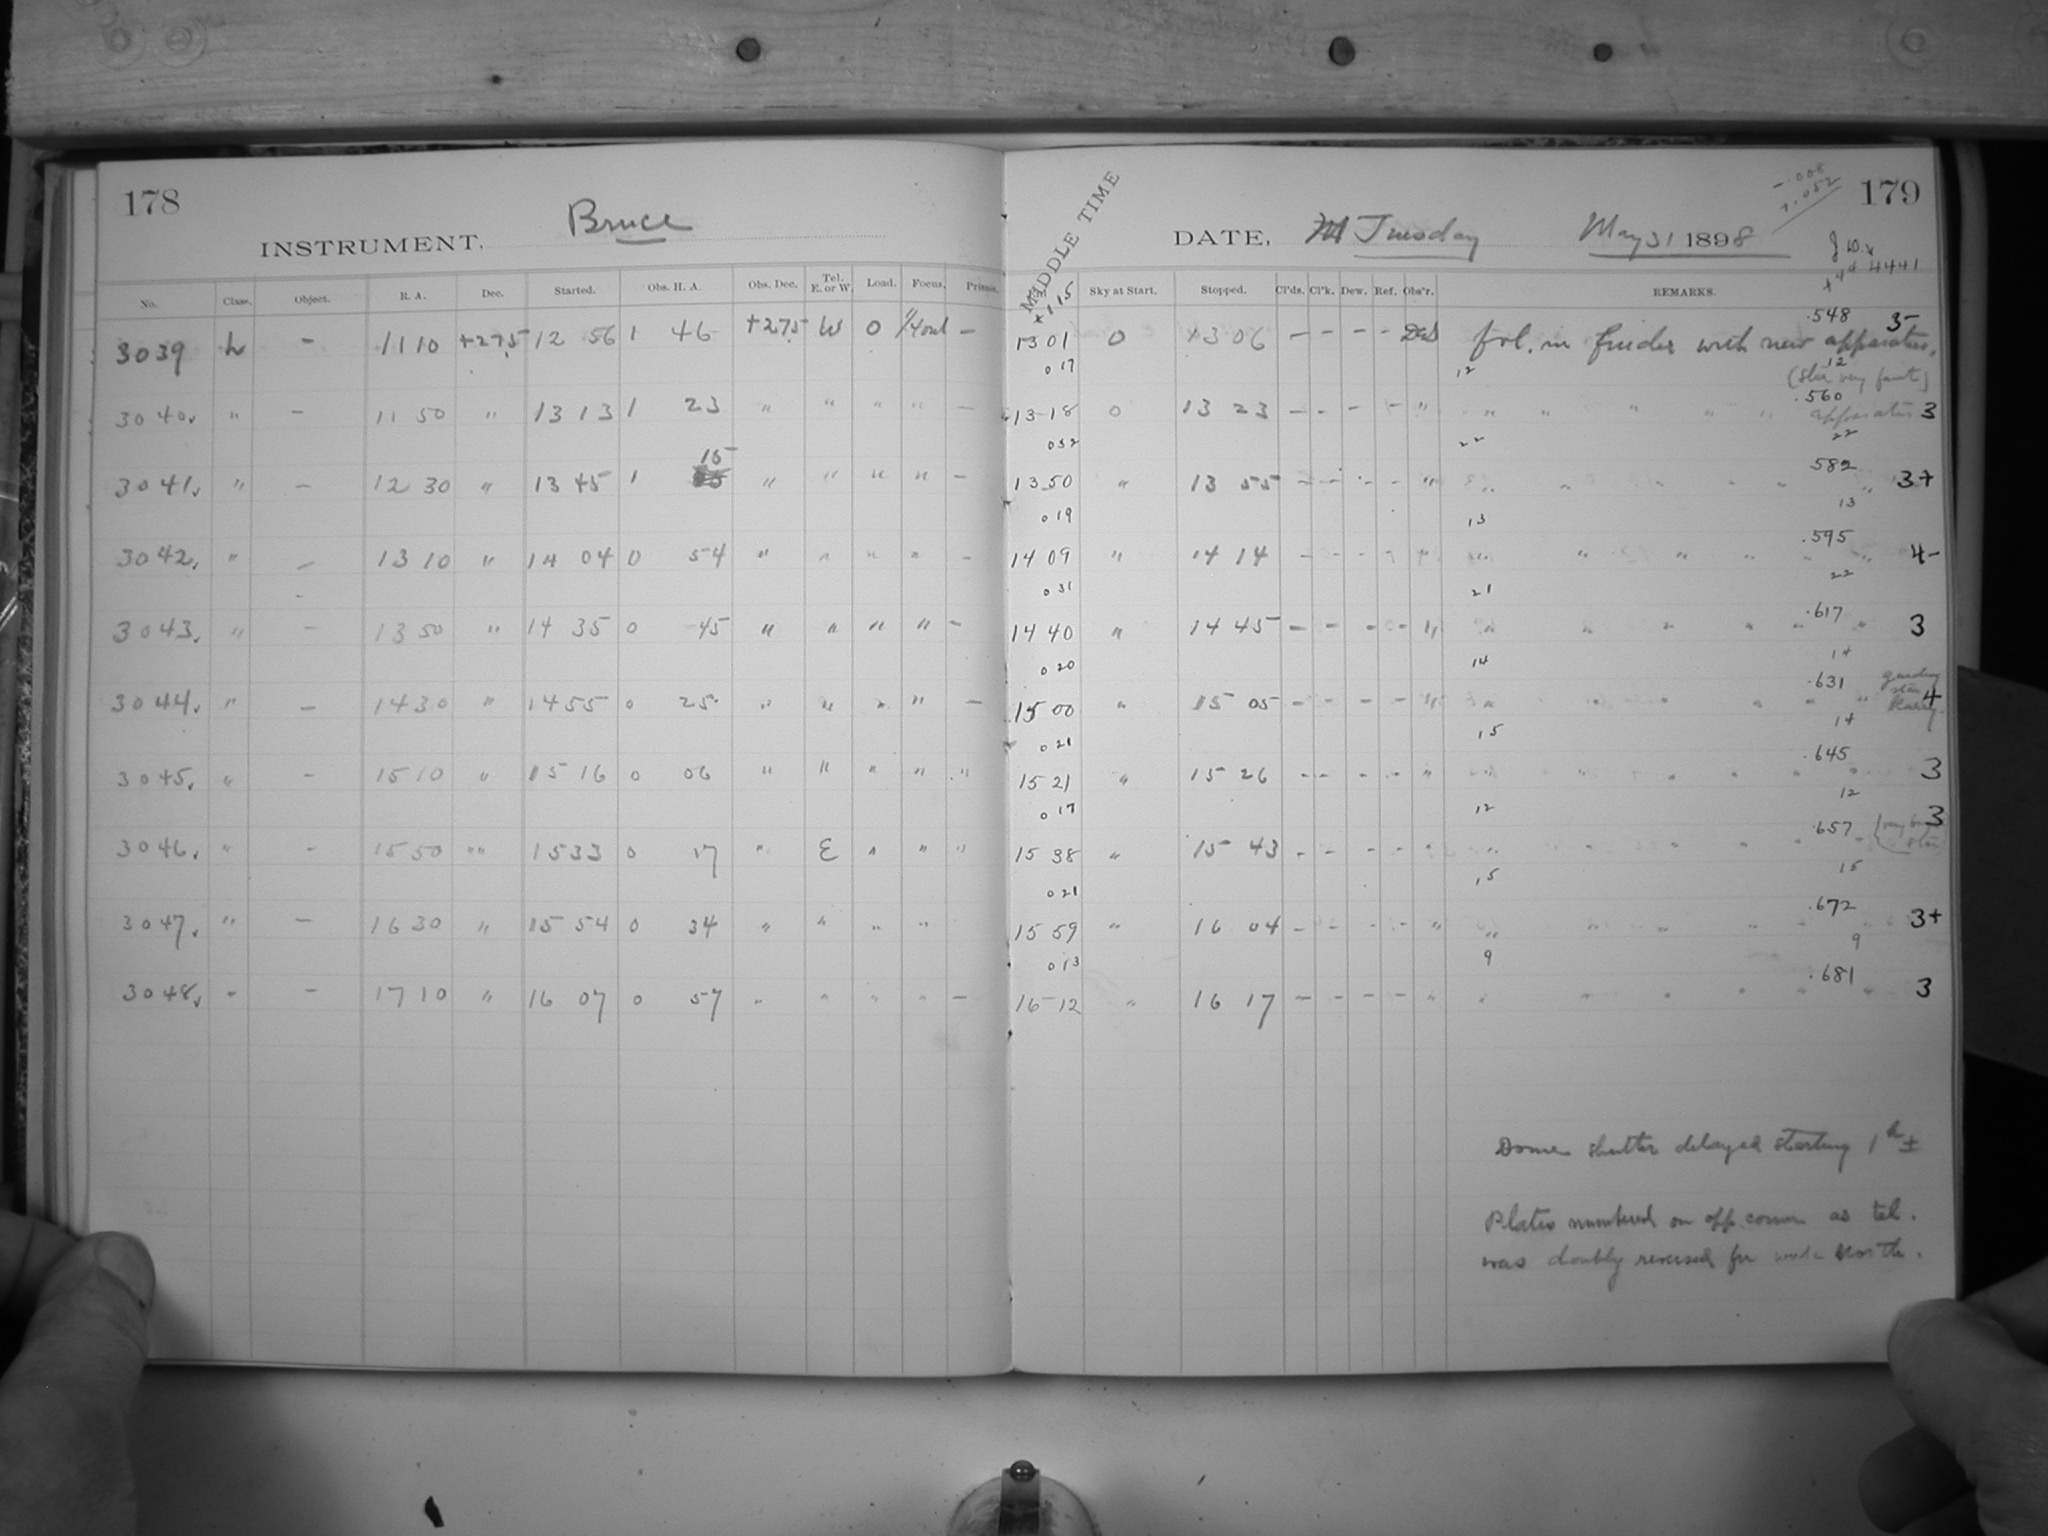 178
Bruce
INSTRUMENT,
No. Class. Object. R. A. Dec. Started. Obs. H. A. Obs. Dec. Tel. E. or W. Load. Focus. Prisms.
3039 L - 11 10 +27.5 12 56 1 46 +27.5 W 0 -
3040 " - 11 50 " 13 13 1 23 " " " " -
3041 " - 12 30 " 13 45 1 15 " " " " -
3042 " - 13 10 " 14 04 0 54 " " " " -
3043 " - 13 50 " 14 35 0 45 " " " " -
3044 " - 14 30 " 14 55 0 25 " " " " -
3045 " - 15 10 " 15 16 0 06 " " " " "
3046 " - 15 50 " 15 33 0 17 " E " " "
3047 " - 16 30 " 15 54 0 34 " " " "
3048 " - 17 10 " 16 07 0 57 " " " " -
179
MIDDLE TIME
DATE, Tuesday May 31 1898
-.008
+.052
4441
Sky at Start. Stopped. Cl'ds. Cl'k. Dew. Ref. Obs'r. REMARKS.
.548 3-
13 01 0 13 06 - - - - fol. in finder with new apparatus,
0 17 12 12
(star very faint)
.560
13 18 0 13 23 - - - - " " " " " " apparatus 3
0 32 22 22
.582
13 50 " 13 55 - - - - " " " " " " " 3+
0 19 13 13
.595
14 09 " 14 14 - - - - " " " " " " " 4-
0 31 21 22
.617
14 40 " 14 45 - - - - " " " " " " " 3
0 20 14 14
.631 guiding star
15 00 " 15 05 - - - - " " " " " " " 4
0 21 15 14
.645
15 21 " 15 26 - - - - " " " " " " " 3
0 17 12 12
.657 3
15 38 " 15 43 - - - - " " " " " " star
0 21 15 15
.672
15 59 " 16 04 - - - - " " " " " " " 3+
0 13 9 9
.681
16 12 " 16 17 - - - - " " " " " " " 3
Dome shutter delayed starting 1h ±
Plates numbered on opp. corner as tel.
was doubly reversed for work North.